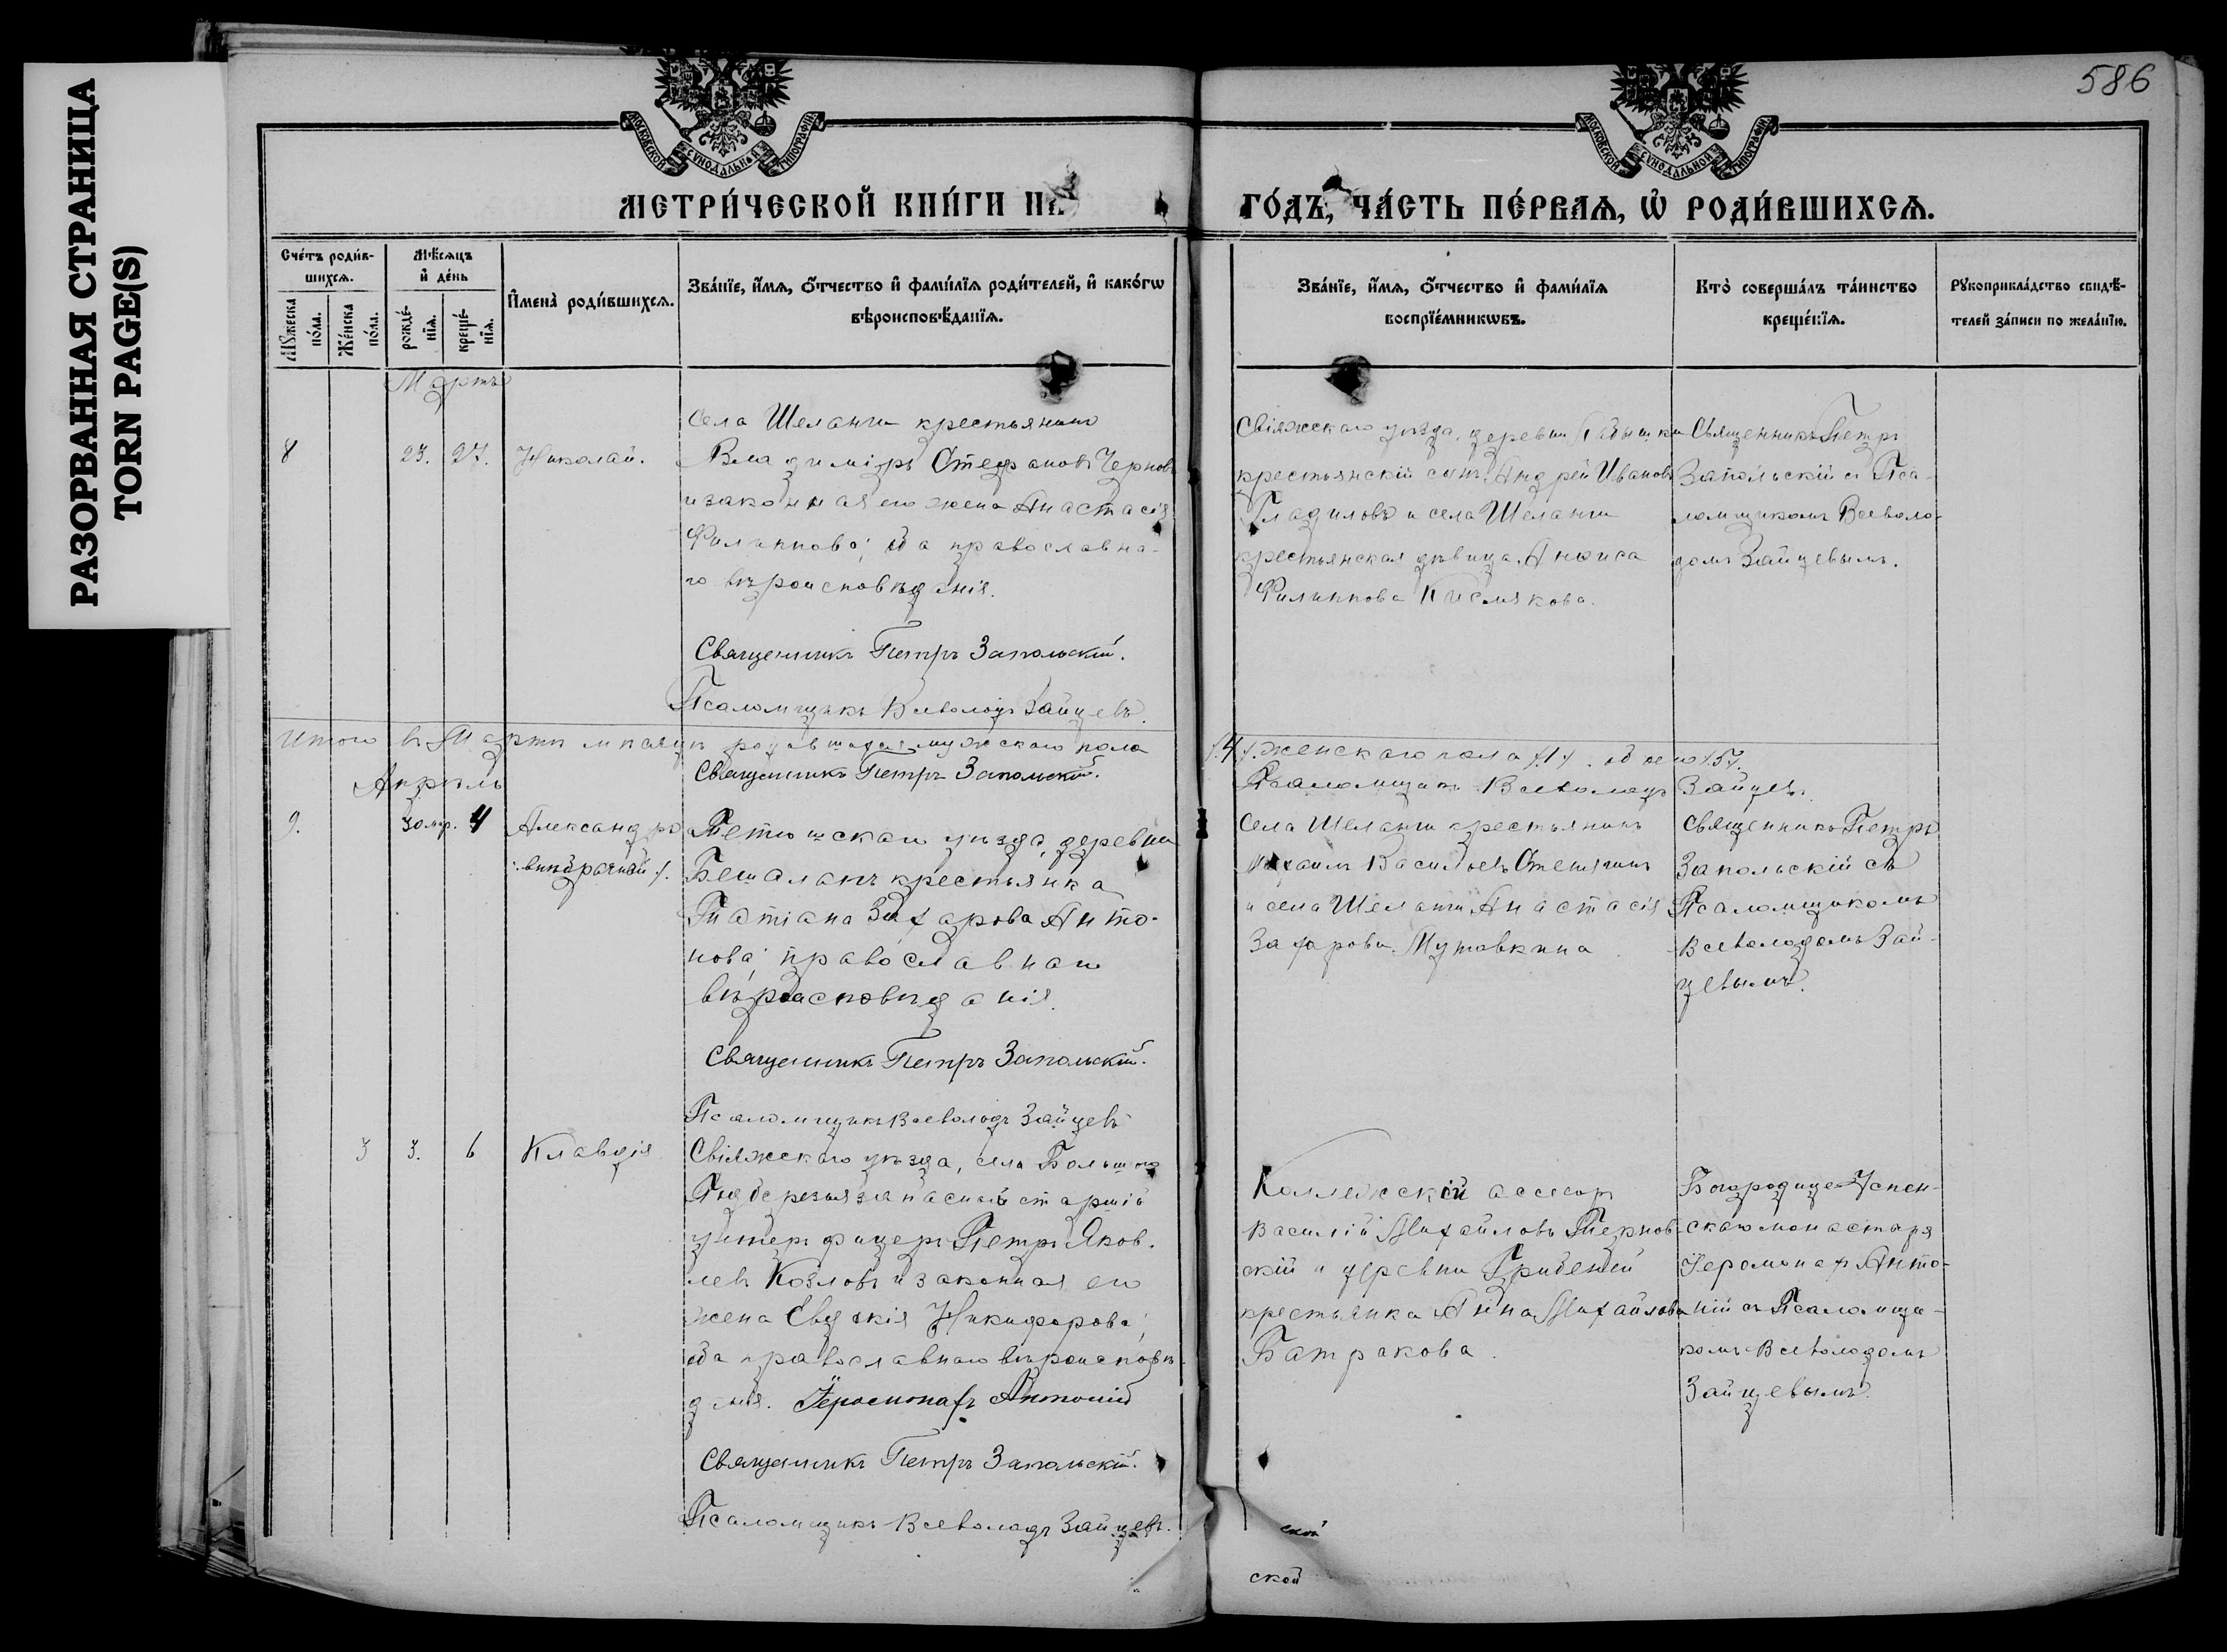 РАЗОРВАННАЯ СТРАНИЦА
TORN PAGE(S)
586
МОСКОВСКОЙ СѴНОДАЛЬНОЙ ТИПОГРАФІИ
МОСКОВСКОЙ СѴНОДАЛЬНОЙ ТИПОГРАФІИ
МЕТРИ́ЧЕСКОЙ КНИ́ГИ НА
ГО́ДЪ, ЧА́СТЬ ПЕ́РВАЯ, Ѽ РОДИ́ВШИХСЯ.
Сче́тъ роди́в-
шихся.
Мѣ́сяцъ
и де́нь
Мꙋ́жеска
по́ла.
Же́нска
по́ла.
рожде́-
нїя.
креще́-
нїя.
Имена̀ роди́вшихся.
Зва́нїе, и́мя, о́тчество и фами́лїя роди́телей, и како́гѡ
вѣроисповѣ́данїя.
Зва́нїе, и́мя, о́тчество и фами́лїя
воспрїе́мникѡвъ.
Кто̀ соверша́лъ та́инство
креще́нїя.
Рꙋкоприкла́дство свидѣ́-
телей за́писи по жела́нїю.
Мартъ
8
23.
27.
Николай.
Села Шеланги крестьянинъ
Владиміръ Стефановъ Чернов
и законная его жена Анастасія
Филиппова; оба православна-
го вѣроисповѣданія.
Священникъ Петръ Запольскій.
Псаломщикъ Всеволодъ Зайцевъ.
Свіяжскаго уѣзда, деревни
крестьянскій сынъ Андрей Ивановъ
Гладиловъ и села Шеланги
крестьянская дѣвица Анфиса
Филиппова Кислякова.
Священникъ Петръ
Запольскій съ Пса-
ломщикомъ Всеволо-
домъ Зайцевымъ.
Итого въ Мартѣ мѣсяцѣ родившихся мужскаго пола
/.4/. женскаго пола /.1/. обоего /5/.
Священникъ Петръ Запольскій.
Псаломщикъ Всеволодъ Зайцевъ.
Апрѣль
9.
30 мр.
4
Александръ
/: внѣбрачный /.
Тетюшскаго уѣзда, деревни
Бешаланъ крестьянка
Татіана Захарова Анто-
нова; православнаго
вѣроисповѣданія.
Священникъ Петръ Запольскій.
Псаломщикъ Всеволодъ Зайцевъ
Села Шеланги крестьянинъ
Михаилъ Васильевъ Стешгинъ
и села Шеланги Анастасія
Захарова Мутовкина
Священникъ Петръ
Запольскій съ
Псаломщикомъ
Всеволодомъ Зай-
цевымъ.
3
3.
6
Клавдія
Свіяжскаго уѣзда, села Большого
Подберезья запасный старшій
унтеръ фицеръ Петръ Яков-
левъ Козловъ и законная его
жена Евдокія Никифорова;
оба православнаго вѣроисповѣ-
данія. Іеромонахъ Антоній
Священникъ Петръ Запольскій.
Псаломщикъ Всеволодъ Зайцевъ.
Коллежскій ассесоръ
Василій Михайловъ Терновс-
скій и деревни Гребеней
крестьянка Анна Михайлова
Батракова.
Богородице-Успен-
скаго монастыря
Іеромонахъ Анто-
ній съ Псаломщи-
комъ Всеволодомъ
Зайцевымъ.
ской
ской